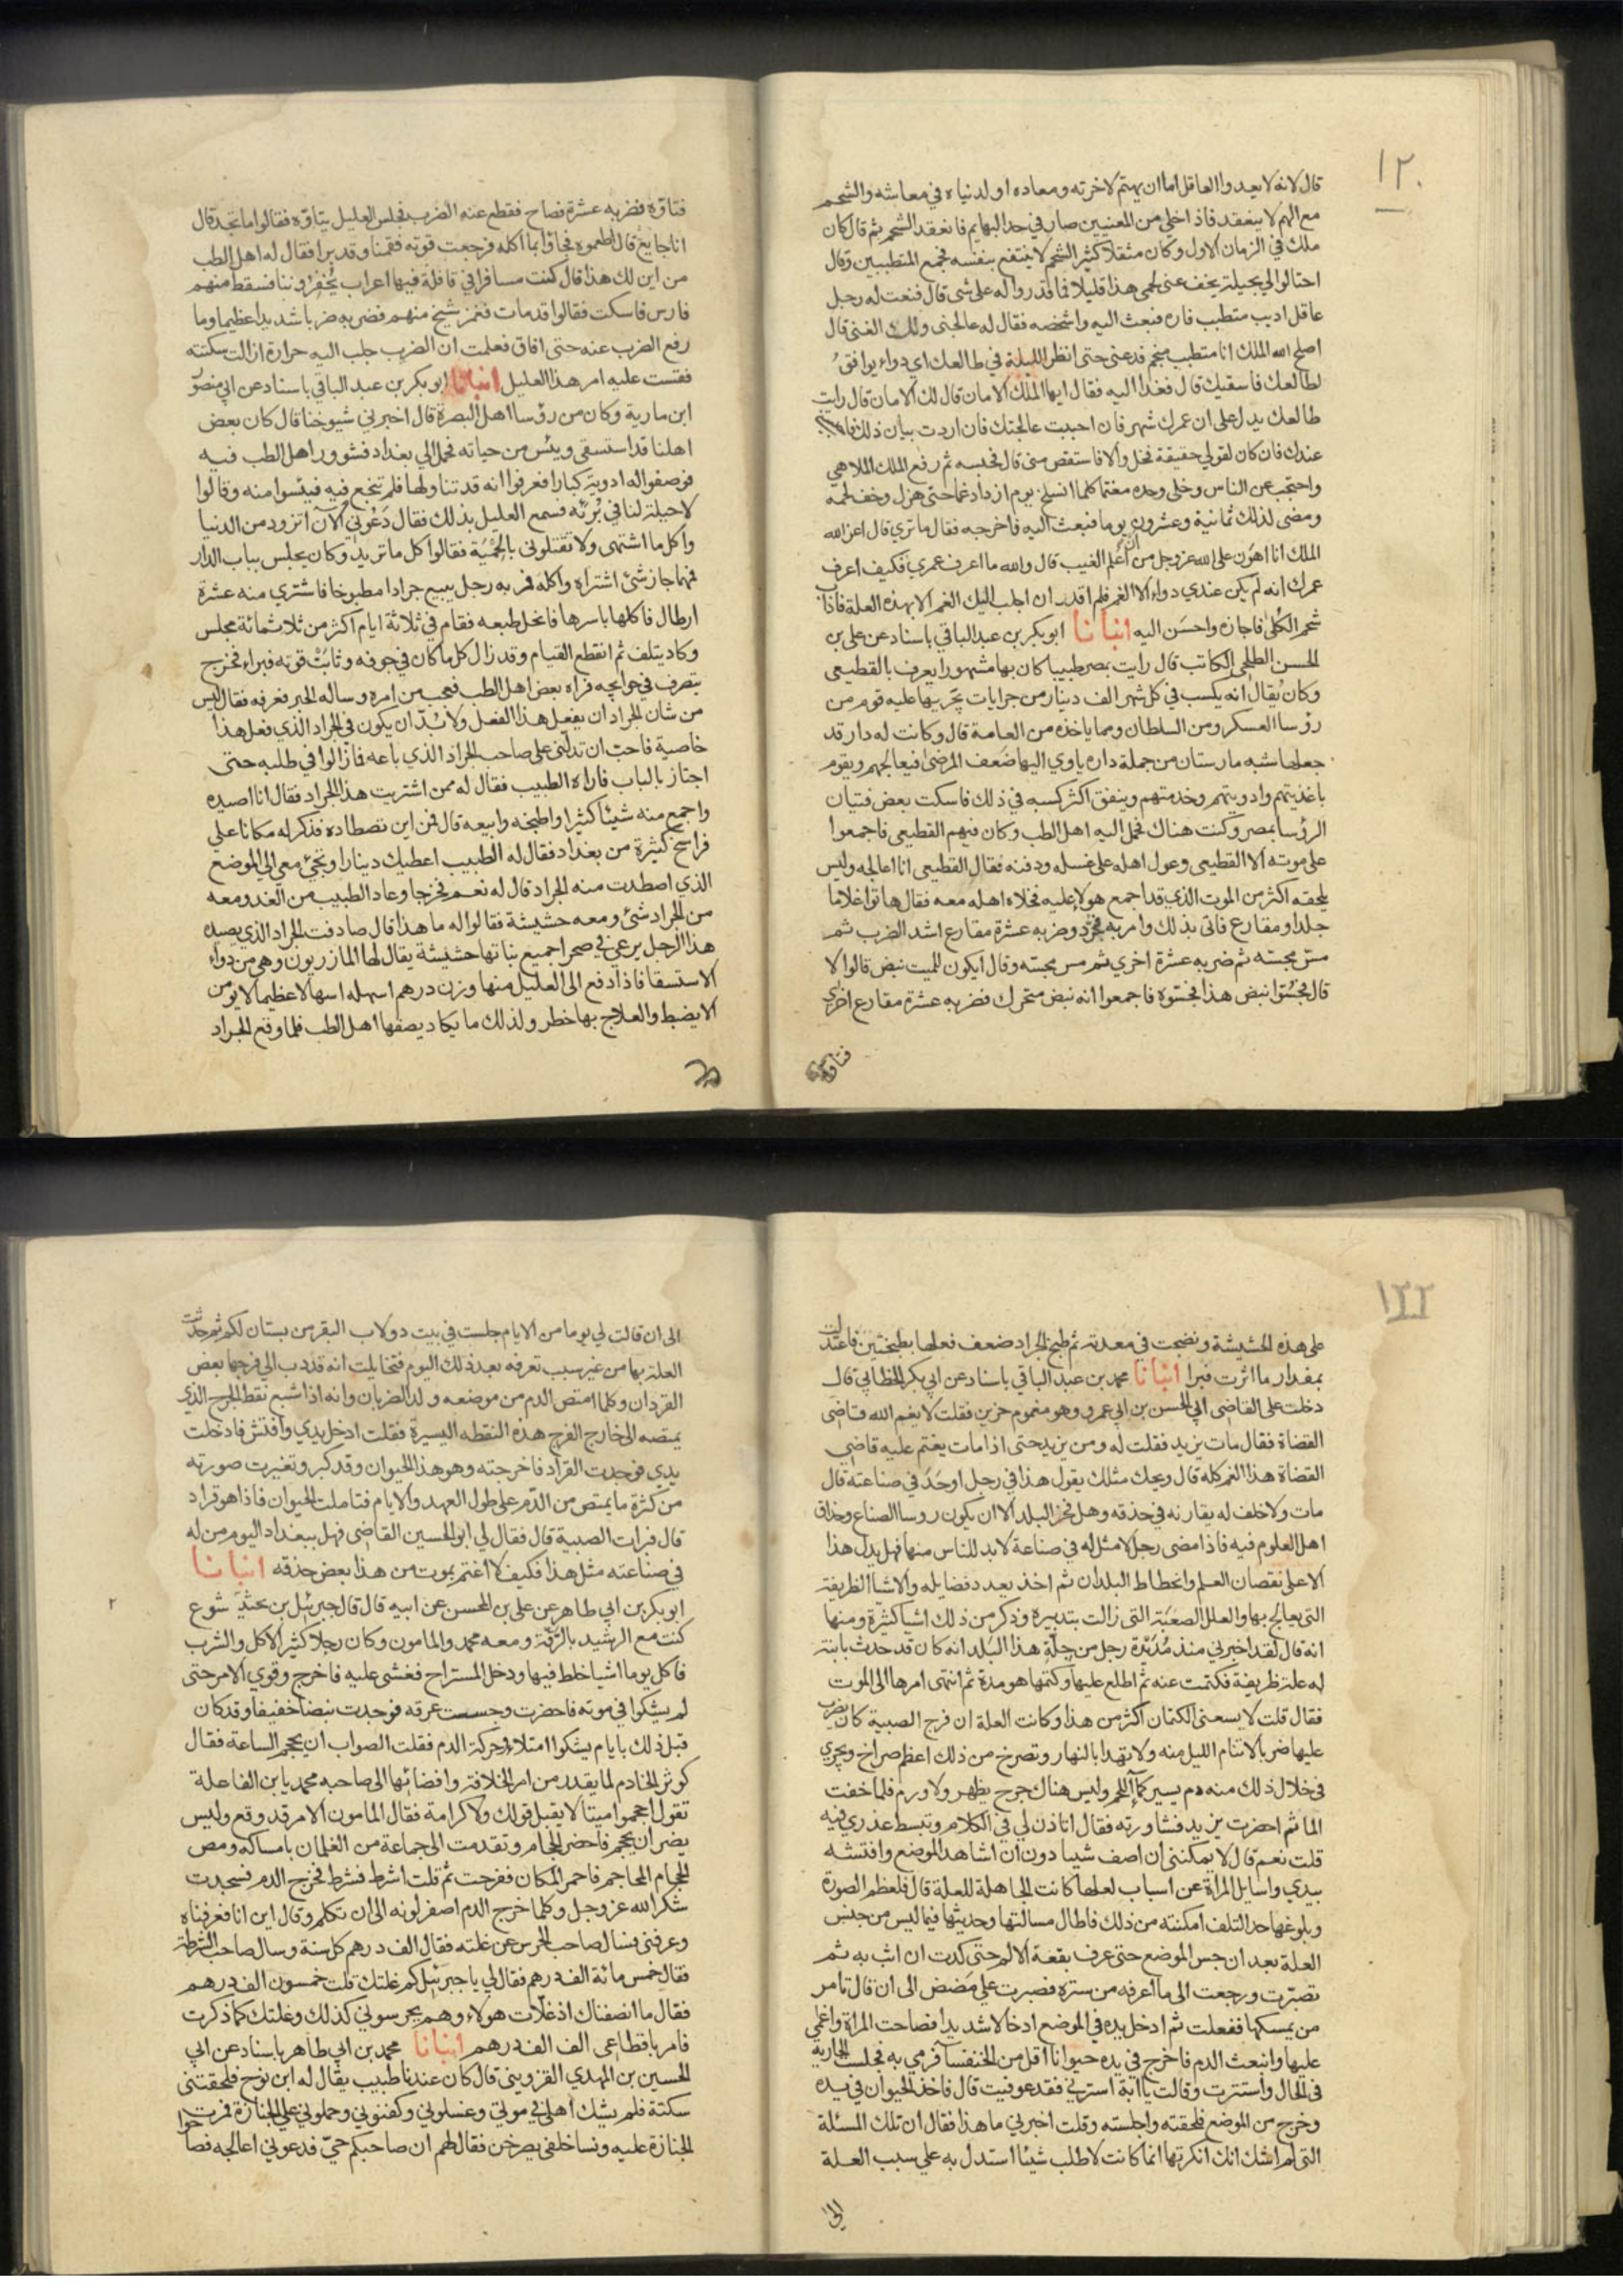 ١٢٠
قال لانه لا يعدوا العاقل اما ان يهتم لاخرته ومعاده او لدنياه في معاشه والشحم
مع الهم لا ينعقد فاذا خلي من المعنيين صار في حد البهايم فانعقد الشحم ثم قال كان
ملك في الزمان الاول وكان مثقلا كثير الشحم لا ينتفع بنفسه فجمع المتطببين وقال
احتالوا لي بحيلة يخف عني لحمي هذا قليلا فما قدروا له على شى قال فنعت له رجل
عاقل اديب متطبب فاره فبعث اليه واشخصه فقال له عالجنى ولك الغنى قال
اصلح الله الملك انا متطبب منجم فدعنى حتى انظر الليلة في طالعك اي دواء يوافق
لطالعك فاسقيك قال فغدا اليه فقال ايها الملك الامان قال لك الامان قال رايت
طالعك يدل على ان عمرك شهر فان احببت عالجتك فان اردت بيان ذلك
عندك فان كان لقولي حقيقة فخل والا فاستقص منى قال فحبسه ثم رفع الملك الملاهي
واحتجب عن الناس وخلى وحده مغتما كلما انسلخ يوم ازداد غما حتى هزل وخف لحمه
ومضى لذلك ثمانية وعشرون يوما فبعث اليه فاخرجه فقال ما ترى قال اعز الله
الملك انا اهون على الله عز وجل من ان اعلم الغيب قال والله ما اعرف عمري فكيف اعرف
عمرك انه لم يكن عندي دواء الا الغم فلم اقدر ان اجلب اليك الغم الا بهذه العلة فاذاب
شحم الكلى فاجازه واحسن اليه انبانا ابو بكر بن عبد الباقي باسناد عن على بن
الحسن الطلحى الكاتب قال رايت بمصر طبيبا كان بها مشهورا يعرف بالقطيعى
وكان يقال انه يكسب في كل شهر الف دينار من جرايات يجريها عليه قوم من
رؤسا العسكر ومن السلطان ومما ياخذه من العامة قال وكانت له دار قد
جعلها شبه مارستان من جملة داره ياوي اليها ضعف المرضى فيعالجهم ويقوم
باغذيتهم وادويتهم وخدمتهم وينفق اكثر كسبه في ذلك فاسكت بعض فتيان
الرؤسا بمصر وكنت هناك فحمل اليه اهل الطب وكان فيهم القطيعى فاجمعوا
على موته الا القطيعى وعول اهله على غسله ودفنه فقال القطيعى انا اعالجه وليس
يلحقه اكثر من الموت الذي قد اجمع هولاء عليه فخلاه اهله معه فقال هاتوا غلاما
جلدا ومقارع فاتى بذلك وامر به فجرد وضربه عشرة مقارع اشد الضرب ثم
مس مجسته ثم ضربه عشرة اخرى ثم مس مجسته وقال ايكون للميت نبض قالوا لا
قال فجسوا نبض هذا فجسوه فاجمعوا انه نبض متحرك فضربه عشرة مقارع اخرى
فتاوه
فتاوه فضربه عشرة فصاح فقطع عنه الضرب فجلس العليل يتاوه فقالوا ما تجد قال
انا جايع قال اطعموه فجاؤا بما اكله فرجعت قوته فقمنا وقد برا فقال له اهل الطب
من اين لك هذا قال كنت مسافرا في قافلة فيها اعراب يخفروننا فسقط منهم
فارس فاسكت فقالوا قد مات فعمز شيخ منهم فضربه ضربا شديدا عظيما وما
رفع الضرب عنه حتى افاق فعلمت ان الضرب جلب اليه حرارة ازالت سكتته
فقست عليه امر هذا العليل انبانا ابو بكر بن عبد الباقي باسناد عن ابي منصور
ابن مارية وكان من رؤسا اهل البصرة قال اخبرني شيوخنا قال كان بعض
اهلنا قد استسقى ويئس من حياته فحمل الى بغداد فشوور اهل الطب فيه
فوصفوا له ادوية كبارا فعرفوا انه قد تناولها فلم تنجع فيه فيئسوا منه وقالوا
لا حيلة لنا في برئه فسمع العليل بذلك فقال دعوني الآن اتزود من الدنيا
واكل ما اشتهى ولا تقتلوني بالحمية فقالوا كل ما تريد وكان يجلس بباب الدار
فمهما جاز شئ اشتراه واكله فمر به رجل يبيع جرادا مطبوخا فاشترى منه عشرة
ارطال فاكلها باسرها فانحل طبعه فقام في ثلاثة ايام اكثر من ثلاثمائة مجلس
وكاد يتلف ثم انقطع القيام وقد زال كل ما كان في جوفه وثابت قوته فبراء فخرج
يتصرف في حوايجه فراه بعض اهل الطب فعجب من امره وساله الخبر فعرفه فقال ليس
من شان الجراد ان يفعل هذا الفعل ولا بد ان يكون في الجراد الذي فعل هذا
خاصية فاحب ان تدلني على صاحب الجراد الذي باعه فما زالوا في طلبه حتى
اجتاز بالباب فاراه الطبيب فقال له ممن اشتريت هذا الجراد فقال انا اصيده
واجمع منه شيئا كثيرا واطبخه وابيعه قال فمن اين تصطاده فذكر له مكانا على
فراسخ كثيرة من بغداد فقال له الطبيب اعطيك دينارا وتجئ معي الى الموضع
الذي اصطدت منه الجراد قال له نعم فخرجا وعاد الطبيب من الغد ومعه
من الجراد شئ ومعه حشيشة فقالوا له ما هذا قال صادفت الجراد الذي يصيده
هذا الرجل يرعى في صحرا جميع نباتها حشيشة يقال لها المازريون وهى من دواء
الاستسقا فاذا دفع الى العليل منها وزن درهم اسهله اسهالا عظيما لا يومن
الا يضبط والعلاج بها خطر ولذلك ما يكاد يصفها اهل الطب فلما وقع الجراد
١٢٢
على هذه الحشيشة ونضجت في معدته ثم طبخ الجراد ضعف فعلها بطبختين فاعتدلت
بمقدار ما اثرت فبرا انبانا محمد بن عبد الباقي باسناد عن ابي بكر الخطابي قال
دخلت على القاضى ابي الحسن بن ابي عمرو وهو مغموم حزين فقلت لا يغم الله قاضى
القضاة فقال مات يزيد فقلت له ومن يزيد حتى اذا مات يغتم عليه قاضى
القضاة هذا الغم كله قال ويحك مثلك يقول هذا في رجل اوحد في صناعته قال
مات ولا خلف له يقارنه في حذقه وهل فخر البلد الا ان يكون روسا الصناع وحذاق
اهل العلوم فيه فاذا مضى رجل لا مثل له في صناعة لا بد للناس منها فهل يدل هذا
الا على نقصان العلم وانحطاط البلدان ثم اخذ يعدد فضايله والاشيا الظريفة
التى يعالج بها والعلل الصعبة التى زالت بتدبيره وذكر من ذلك اشيا كثيرة ومنها
انه قال لقد اخبرني منذ مديدة رجل من جلة هذا البلد انه كان قد حدث بابنة
له علة ظريفة فكتمت عنه ثم اطلع عليها وكتمها هو مدة ثم انتهى امرها الى الموت
فقال قلت لا يسعنى الكتمان اكثر من هذا وكانت العلة ان فرج الصبية كان يضرب
عليها ضربا لا تنام الليل منه ولا تهدا بالنهار وتصرخ من ذلك اعظم صراخ ويجري
في خلال ذلك منه دم يسير كماء اللحم وليس هناك جرح يظهر ولا ورم فلما خفت
الماثم احضرت يزيد فشاورته فقال اتاذن لي في الكلام وتبسط عذري فيه
قلت نعم قال لا يمكننى ان اصف شيا دون ان اشاهد الموضع وافتشه
بيدي واسايل المراة عن اسباب لعلها كانت الجاهلة للعلة قال فلعظم الصورة
وبلوغها حد التلف امكنته من ذلك فاطال مسالتها وحديثها فيما ليس من جنس
العلة بعد ان جس الموضع حتى عرف بقعة الالم حتى كدت ان اثب به ثم
تصبرت ورجعت الى ما اعرفه من ستره فصبرت على مضض الى ان قال تامر
من يمسكها ففعلت ثم ادخل يده في الموضع ادخالا شديدا فصاحت المراة واغمي
عليها وانبعث الدم فاخرج في يده حيوانا اقل من الخنفسا فرمي به فجلست الجارية
في الحال واستترت وقالت يا ابة استرني فقد عوفيت قال فاخذ الحيوان في يده
وخرج من الموضع فلحقته واجلسته وقلت اخبرني ما هذا فقال ان تلك المسئلة
التى لم اشك انك انكرتها انما كانت لاطلب شيئا استدل به على سبب العلة
الى
الى ان قالت لي يوما من الايام جلست في بيت دولاب البقر من بستان لكم ثم حدثت
العلة بها من غير سبب تعرفه بعد ذلك اليوم فتخايلت انه قد دب الى فرجها بعض
القردان وكلما امتص الدم من موضعه ولد الضربان وانه اذا شبع نقط الجرح الذي
يمتصه الى خارج الفرج هذه النقطه اليسيرة فقلت ادخل يدي وافتش فادخلت
يدي فوجدت القراد فاخرجته وهو هذا الحيوان وقد كبر وتغيرت صورته
من كثرة ما يمتص من الدم على طول العهد والايام فتاملت الحيوان فاذا هو قراد
قال فبرات الصبية قال فقال لي ابو الحسين القاضى فهل ببغداد اليوم من له
في صناعته مثل هذا فكيف لا اغتم بموت من هذا بعض حذقه انبانا
ابو بكر بن ابي طاهر عن على بن المحسن عن ابيه قال قال جبرئيل بن بختيشوع
٢
كنت مع الرشيد بالرقة ومعه محمد والمامون وكان رجلا كثير الاكل والشرب
فاكل يوما اشيا خلط فيها ودخل المستراح فغشى عليه فاخرج وقوي الامر حتى
لم يشكوا في موته فاحضرت وجسست عرقه فوجدت نبضا خفيفا وقد كان
قبل ذلك بايام يشكوا امتلاء وحركة الدم فقلت الصواب ان يحجم الساعة فقال
كوثر الخادم لما يقدر من امر الخلافة وافضائها الى صاحبه محمد يا بن الفاعلة
تقول احجموا ميتا لا يقبل قولك ولا كرامة فقال المامون الامر قد وقع وليس
يضر ان يحجم فاحضر الحجام وتقدمت الى جماعة من الغلمان بامساكه ومص
الحجام المحاجم فاحمر المكان ففرحت ثم قلت اشرط فشرط فخرج الدم فسجدت
شكرا لله عز وجل وكلما خرج الدم اصفر لونه الى ان تكلم وقال اين انا فعرفناه
وعرفني فسال صاحب الحرس عن غلته فقال الف درهم كل سنة وسال صاحب الشرطة
فقال خمس مائة الف درهم فقال لي يا جبرئيل كم غلتك قلت خمسون الف درهم
فقال ما انصفناك اذ غلات هولاء وهم يحرسوني كذلك وغلتك كما ذكرت
فامر باقطاعى الف الف درهم انبانا محمد بن ابي طاهر باسناد عن ابي
الحسين بن المهدي القزويني قال كان عندنا طبيب يقال له ابن نوح فلحقتنى
سكتة فلم يشك اهلى في موتي وغسلوني وكفنوني وحملوني على الجنازة فمرت
الجنازة عليه ونسا خلفى يصرخن فقال لهم ان صاحبكم حي فدعوني اعالجه فصاحوا